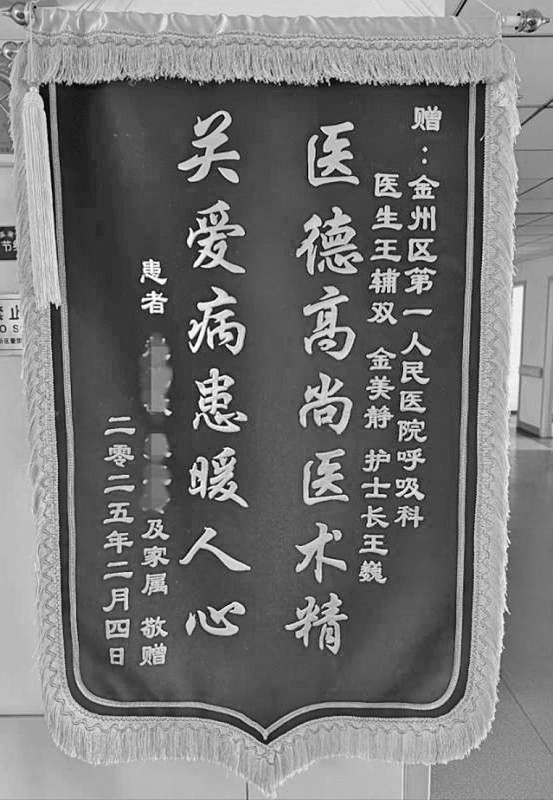 赠：金州区第一人民医院呼吸科
医生王辅双 金美静 护士长王巍
医德高尚医术精
关爱病患暖人心
患者
及家属 敬赠
二零二五年二月四日